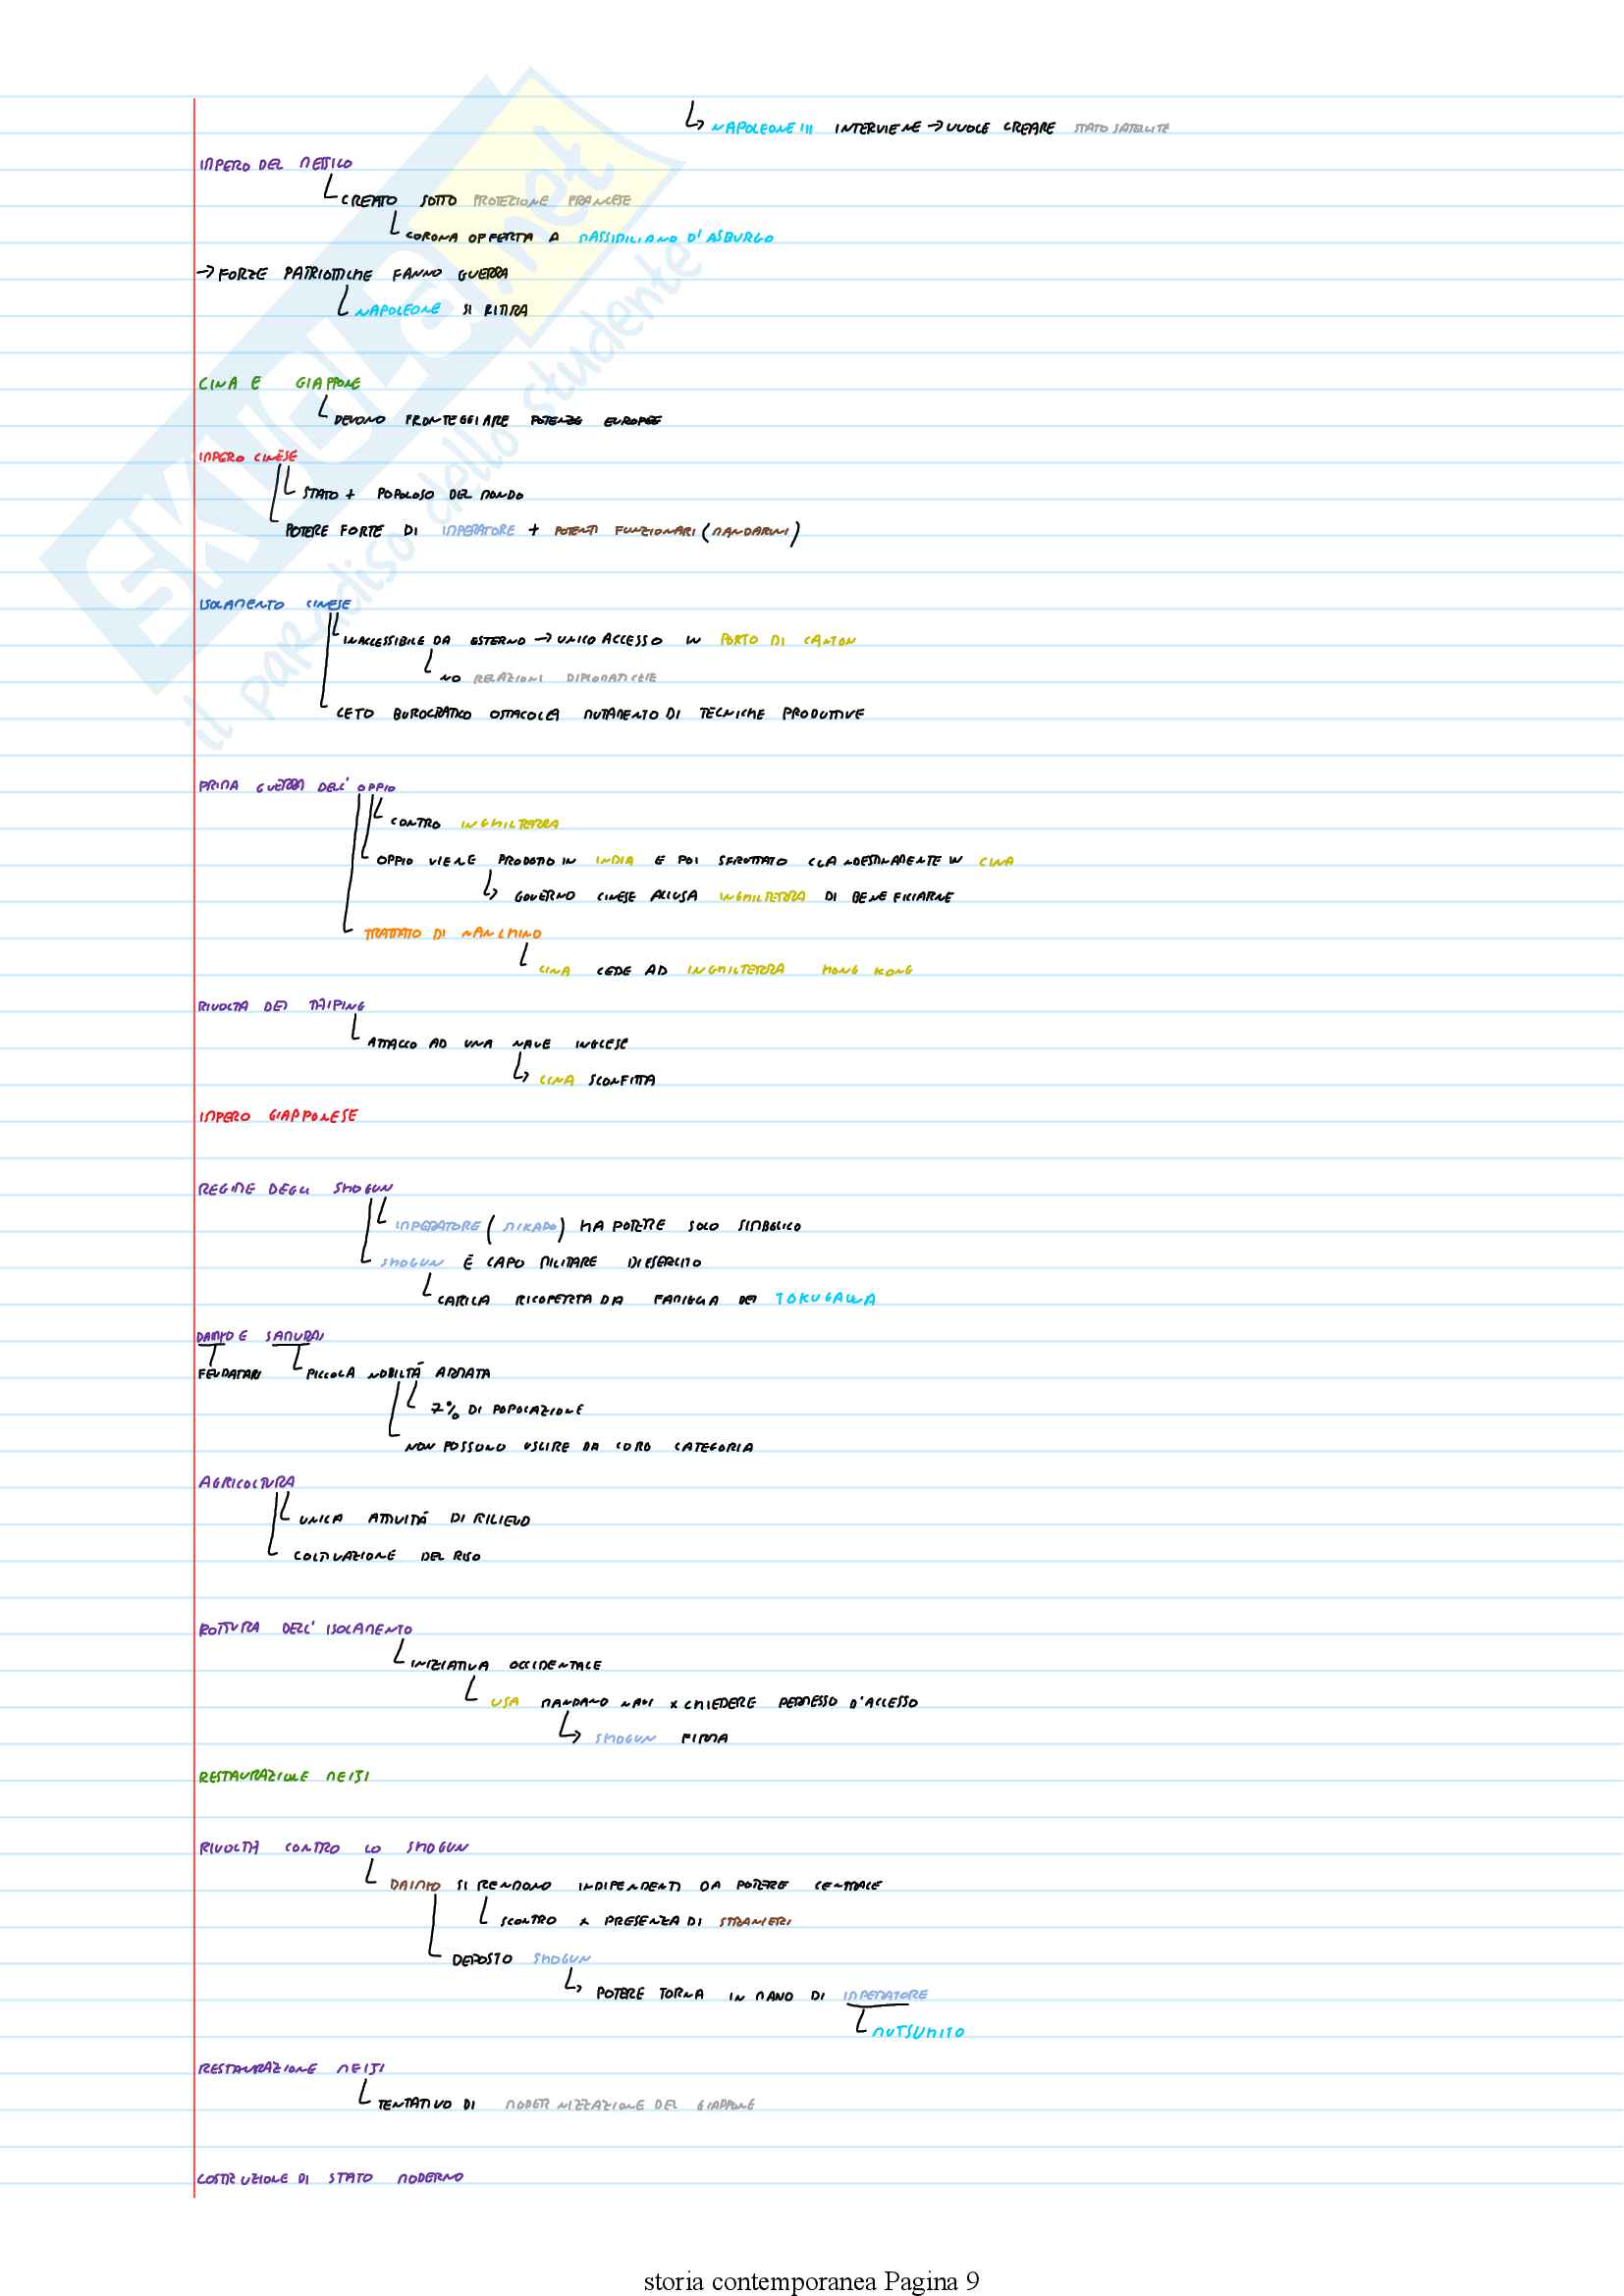 ↳ NAPOLEONE III INTERVIENE → VUOLE CREARE STATO SATELLITE
IMPERO DEL MESSICO
CREATO SOTTO PROTEZIONE FRANCESE
CORONA OFFERTA A MASSIMILIANO D'ASBURGO
→ FORZE PATRIOTTICHE FANNO GUERRA
NAPOLEONE SI RITIRA
CINA E GIAPPONE
DEVONO FRONTEGGIARE POTENZE EUROPEE
IMPERO CINESE
STATO + POPOLOSO DEL MONDO
POTERE FORTE DI IMPERATORE + POTENTI FUNZIONARI (MANDARINI)
ISOLAMENTO CINESE
INACCESSIBILE DA ESTERNO → UNICO ACCESSO IN PORTO DI CANTON
NO RELAZIONI DIPLOMATICHE
CETO BUROCRATICO OSTACOLA MUTAMENTO DI TECNICHE PRODUTTIVE
PRIMA GUERRA DELL'OPPIO
CONTRO INGHILTERRA
OPPIO VIENE PRODOTTO IN INDIA E POI SFRUTTATO CLANDESTINAMENTE IN CINA
↳ GOVERNO CINESE ACCUSA INGHILTERRA DI BENEFICIARNE
TRATTATO DI NANCHINO
CINA CEDE AD INGHILTERRA HONG KONG
RIVOLTA DEI TAIPING
ATTACCO AD UNA NAVE INGLESE
↳ CINA SCONFITTA
IMPERO GIAPPONESE
REGIME DEGLI SHOGUN
IMPERATORE (MIKADO) HA POTERE SOLO SIMBOLICO
SHOGUN È CAPO MILITARE DI ESERCITO
CARICA RICOPERTA DA FAMIGLIA DEI TOKUGAWA
DAIMYO E SAMURAI
FEUDATARI PICCOLA NOBILTÁ ARMATA
7% DI POPOLAZIONE
NON POSSONO USCIRE DA LORO CATEGORIA
AGRICOLTURA
UNICA ATTIVITÁ DI RILIEVO
COLTIVAZIONE DEL RISO
ROTTURA DELL'ISOLAMENTO
INIZIATIVA OCCIDENTALE
USA MANDANO NAVI x CHIEDERE PERMESSO D'ACCESSO
↳ SHOGUN FIRMA
RESTAURAZIONE MEIJI
RIVOLTA CONTRO LO SHOGUN
DAIMYO SI RENDONO INDIPENDENTI DA POTERE CENTRALE
SCONTRO x PRESENZA DI STRANIERI
DEPOSTO SHOGUN
↳ POTERE TORNA IN MANO DI IMPERATORE
MUTSUHITO
RESTAURAZIONE MEIJI
TENTATIVO DI MODERNIZZAZIONE DEL GIAPPONE
COSTRUZIONE DI STATO MODERNO
SKUOLA.net
il paradiso dello studente
storia contemporanea Pagina 9